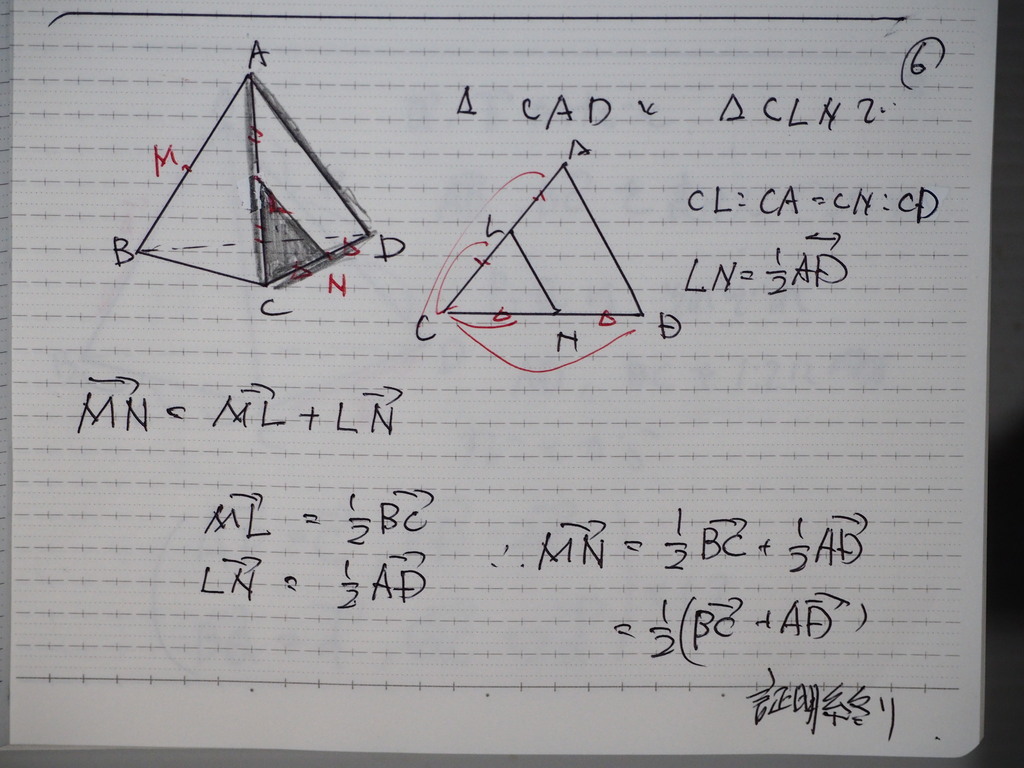 (6)
△ CAD と △CLNで
A
M
B
C
N
D
A
L
C
N
D
CL:CA=CN:CD
LN=½AD→
MN→ = ML→ + LN→
ML→ = ½BC→
LN→ = ½AD→
∴ MN→ = ½BC→ + ½AD→
= ½(BC→ + AD→)
証明終り